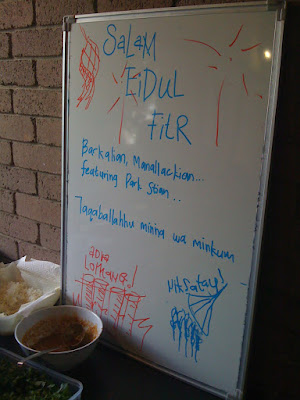 SaLaM
EiDuL
FitR
Barkatian, Manallackian...
featuring Park Stian..
Taqaballahhu minna wa minkum
LoNtong!
Nik Satay!